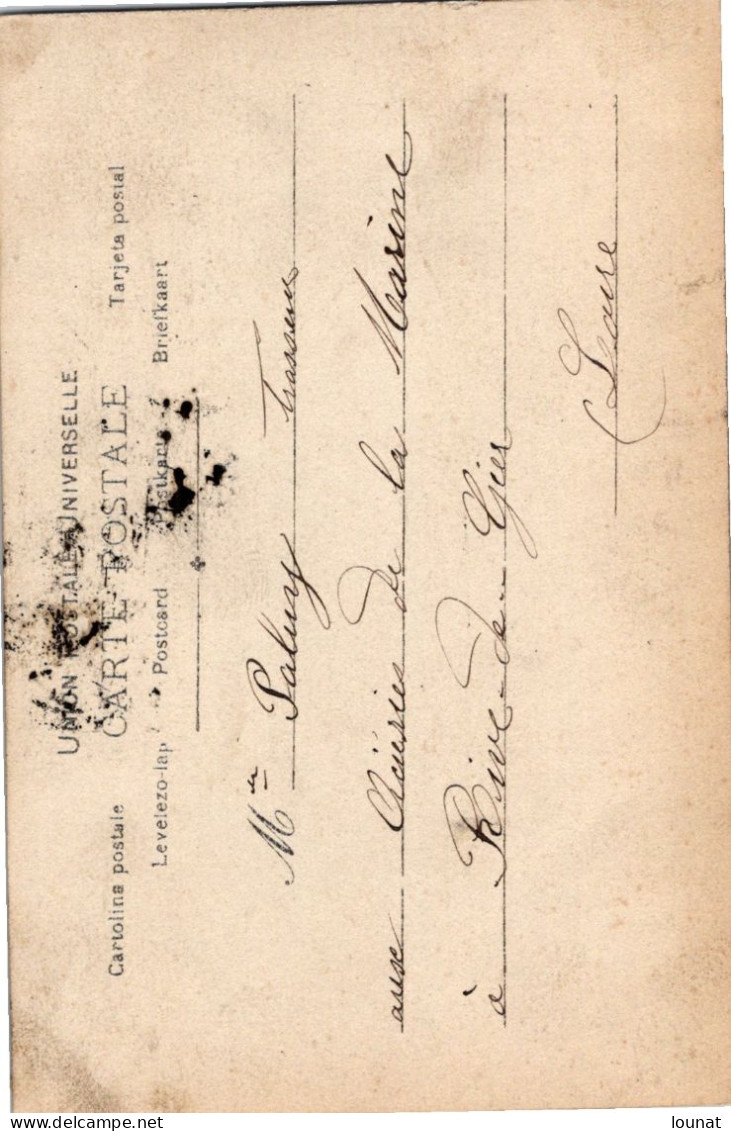 UNION POSTALE UNIVERSELLE
CARTE POSTALE
Cartolina postale Tarjeta postal
Levelezo-lap Postcard Postkarte Briefkaart
Mer Paluy
aux Aciéries de la Marine
à Rive-de-Gier
(Loire
lounat